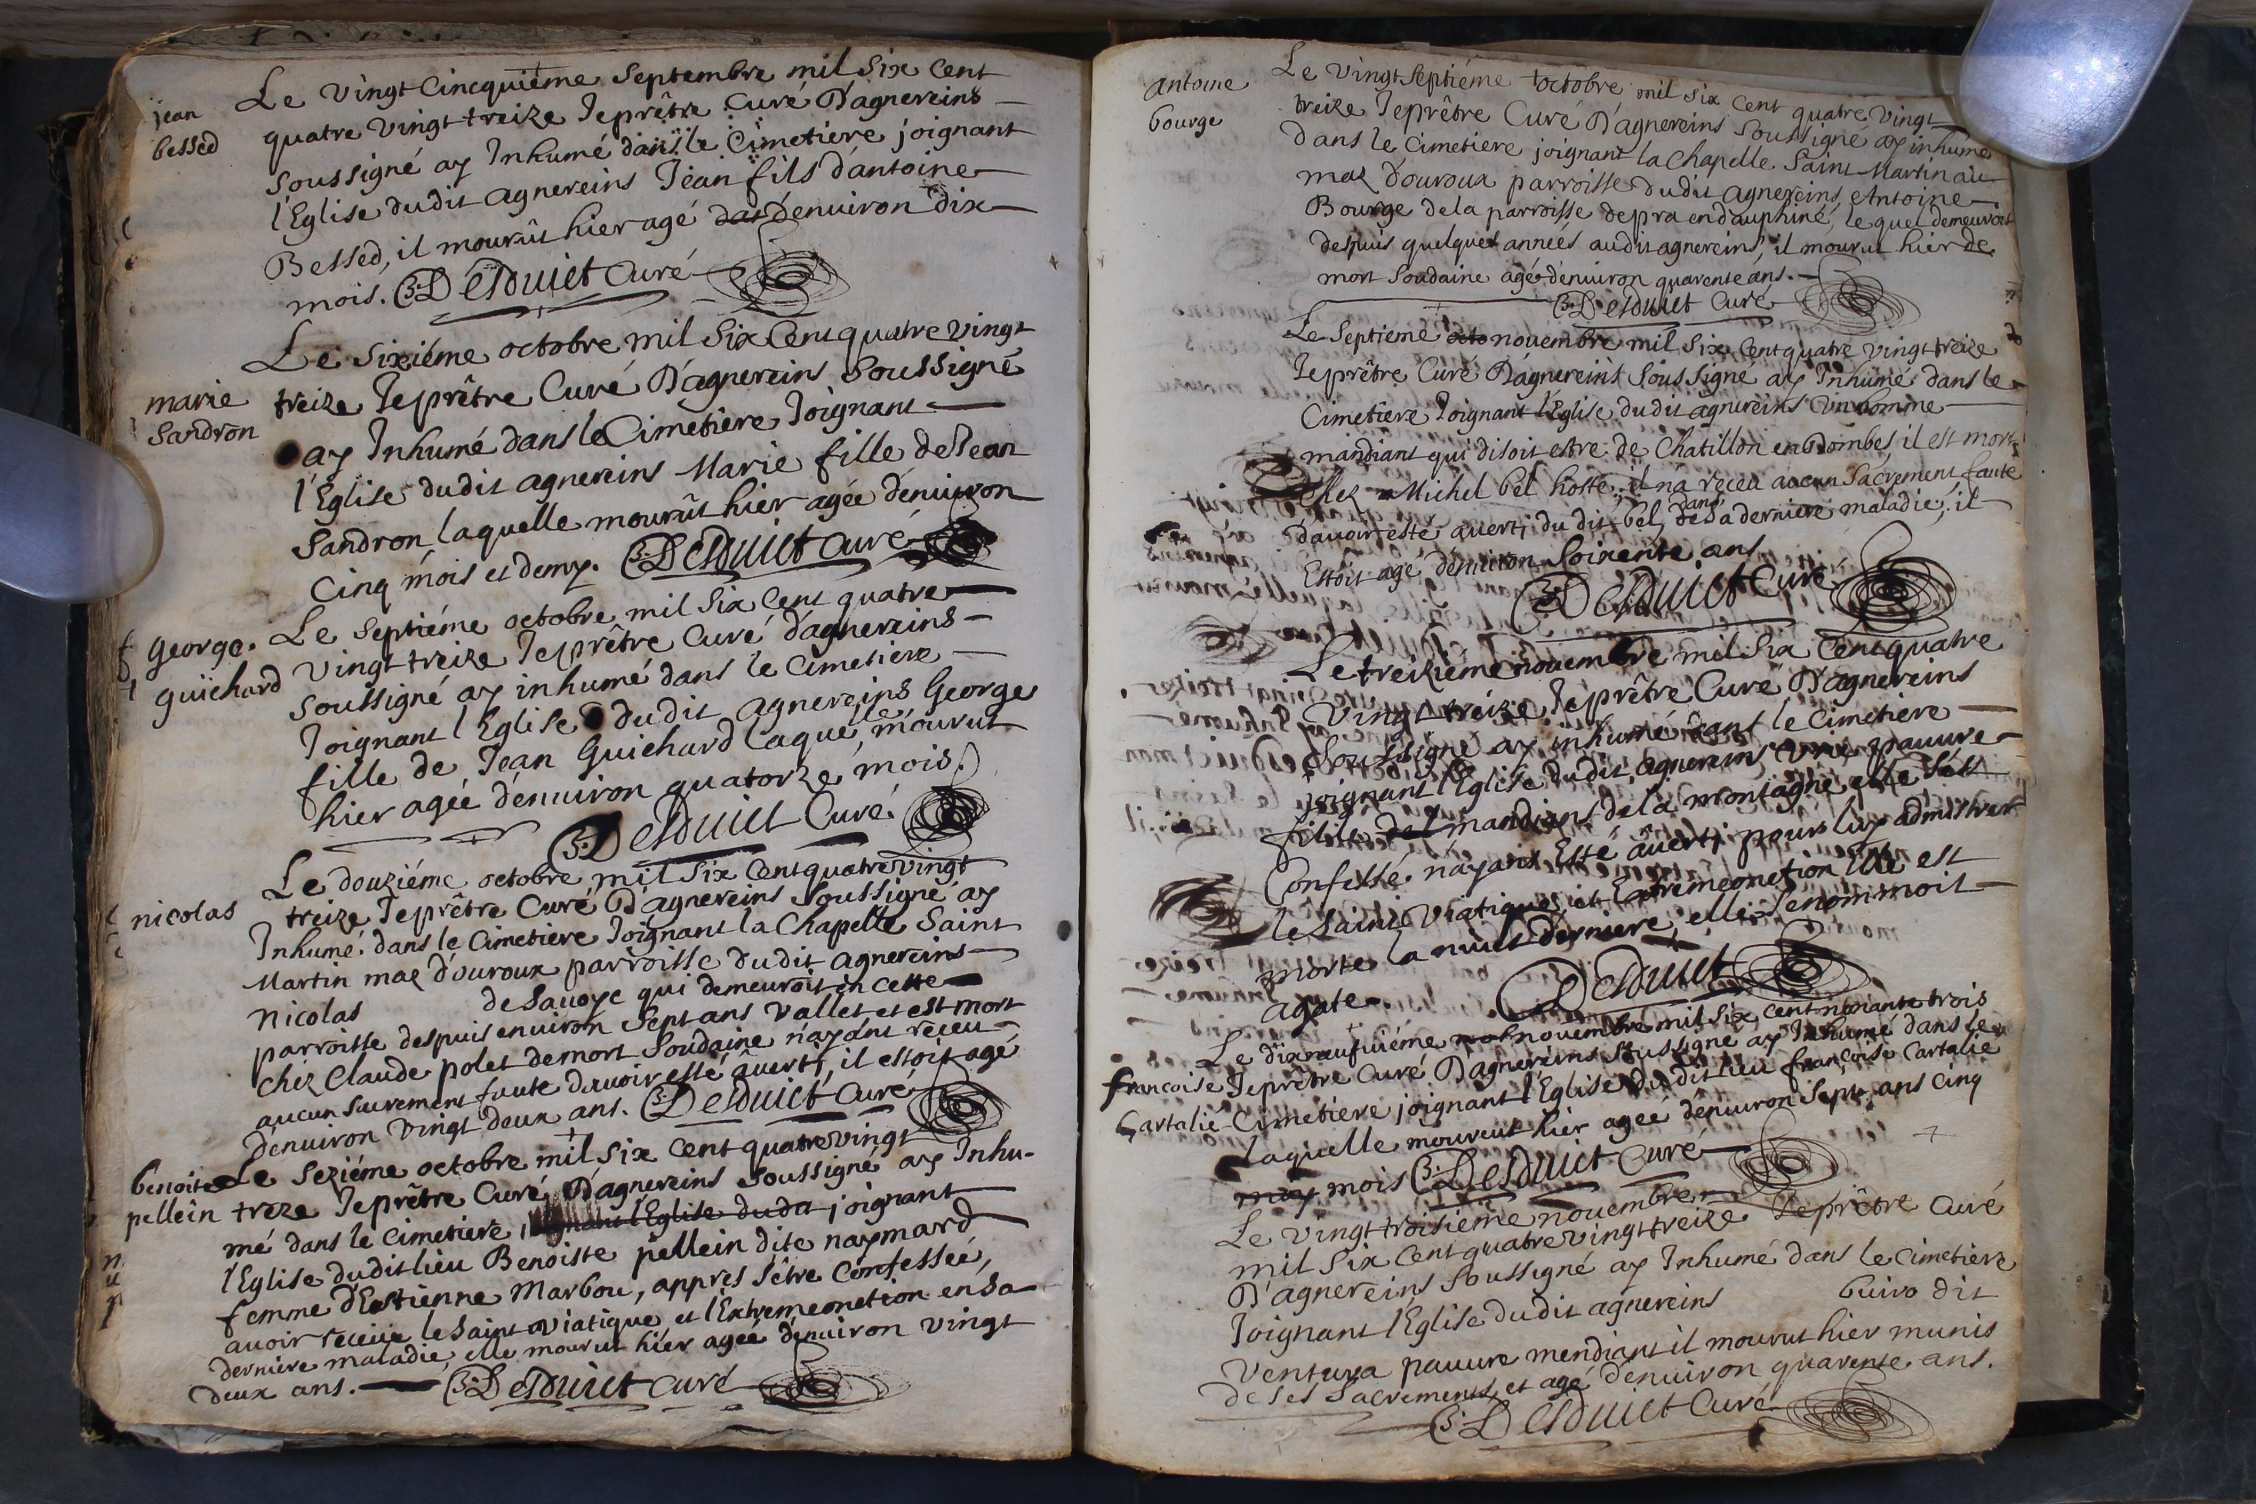 jean
bessed
Le vingt cincquiéme septembre mil six cent
quatre vingt treize Je prêtre Curé D'agnereins
soussigné ay Inhumé dans le Cimetiere joignant
l'Eglise dudit agnereins Jean fils d'antoine
Bessed, il mourût hier agé d'enuiron dix
mois. Desduict Curé
marie
sandron
Le sixiéme octobre mil six Cent quatre vingt
treize Je prêtre Curé D'agnereins Soussigné
ay Inhumé dans le Cimetiere Joignant
l'Eglise dudit agnereins Marie fille de Jean
Sandron laquelle mourût hier agée d'enuiron
Cinq mois et demy. Desduict Curé
george
guichard
Le septiéme octobre mil six Cent quatre
vingt treize Je prêtre Curé d'agnereins
soussigné ay inhumé dans le Cimetiere
Joignant l'Eglise dudit agnereins George
fille de Jean Guichard laquelle mourut
hier agée d'enuiron quatorze mois.
Desduict Curé
nicolas
Le douziéme octobre mil six Cent quatre vingt
treize Je prêtre Curé D'agnereins Soussigné ay
Inhumé dans le Cimetiere Joignant la Chapelle Saint
Martin maz d'ouroux parroisse dudit agnereins
nicolas de Sauoye qui demeuroit en Cette
parroisse despuis enuiron Sept ans vallet et est mort
chez Claude polet de mort Soudaine n'ayant receu
aucun Sacrement faute d'auoir esté âuerti, il estoit agé
d'enuiron vingt deux ans. Desduict Curé
benoite
pellein
Le Seziéme octobre mil six Cent quatre vingt
treze Je prêtre Curé D'agnereins Soussigné ay Inhu-
mé dans le Cimetiere joignant l'Eglise duda joignant
l'Eglise dudit lieu Benoiste pellein dite naymard
femme d'Estienne Marbou, appres s'être Confesseé,
auoir receüe le Saint viatique et l'Extremeonction en Sa
derniere maladie, elle mourut hier ageé d'enuiron vingt
deux ans. Desduict Curé
antoine
bourge
Le vingt septiéme octobre mil six Cent quatre vingt
treize Je prêtre Curé D'agnereins Soussigné ay inhumé
dans le Cimetiere joignant la Chapelle Saint Martin au
maz d'ouroux parroisse dudit agnereins, Antoine
Bourge de la parroisse de pra en dauphiné, le quel demeuroit
despuis quelques anneés audit agnereins, il mourut hier de
mort Soudaine agé d'enuiron quarente ans.
Desduict Curé
Le Septiéme octo nouembre mil six Cent quatre vingt treize
Je prêtre Curé D'agnereins Soussigné ay Inhumé dans le
Cimetiere Joignant l'Eglise dudit agnereins un homme
mandiant qui disoit estre de Chatillon en Dombes, il est mort
chez Michel bel hoste, il n'a receu aucun Sacrement faute
d'auoir esté auerti du dit bel, dans de Sa derniere maladie, il
Estoit agé d'enuiron Soixente ans
Desduict Curé
Le treiziéme nouembre mil six Cent quatre
vingt treize Je prêtre Curé D'agnereins
Soussigné ay inhumé dans le Cimetiere
joignant l'Eglise dudit agnereins une pauure
fille mandiant de la montagne elle s'est
Confessé n'ayant Esté âuerti pour luy admistrer
le Saint viatique et Extremeonction Elle est
morte la nuict derniere, elle Se nommoit
agate. Desduict
francoise
Cartalié
Le dixneufuiéme nouembre mil six Cent nonante trois
Je prêtre Curé D'agnereins Soussigné ay Inhumé dans le
Cimetiere joignant l'Eglise du dit lieu françoise Cartalié
laquelle mourut hier ageé d'enuiron Sept ans cinq
may mois Desduict Curé
Le vingt troisiéme nouembre
mil six Cent quatre vingt treize Je prêtre Curé
D'agnereins Soussigné ay Inhumé dans le Cimetiere
Joignant l'Eglise dudit agnereins buiro dit
Ventura pauure mendiant il mourut hier munis
de ses Sacrements et agé d'enuiron quarente ans.
Desduict Curé